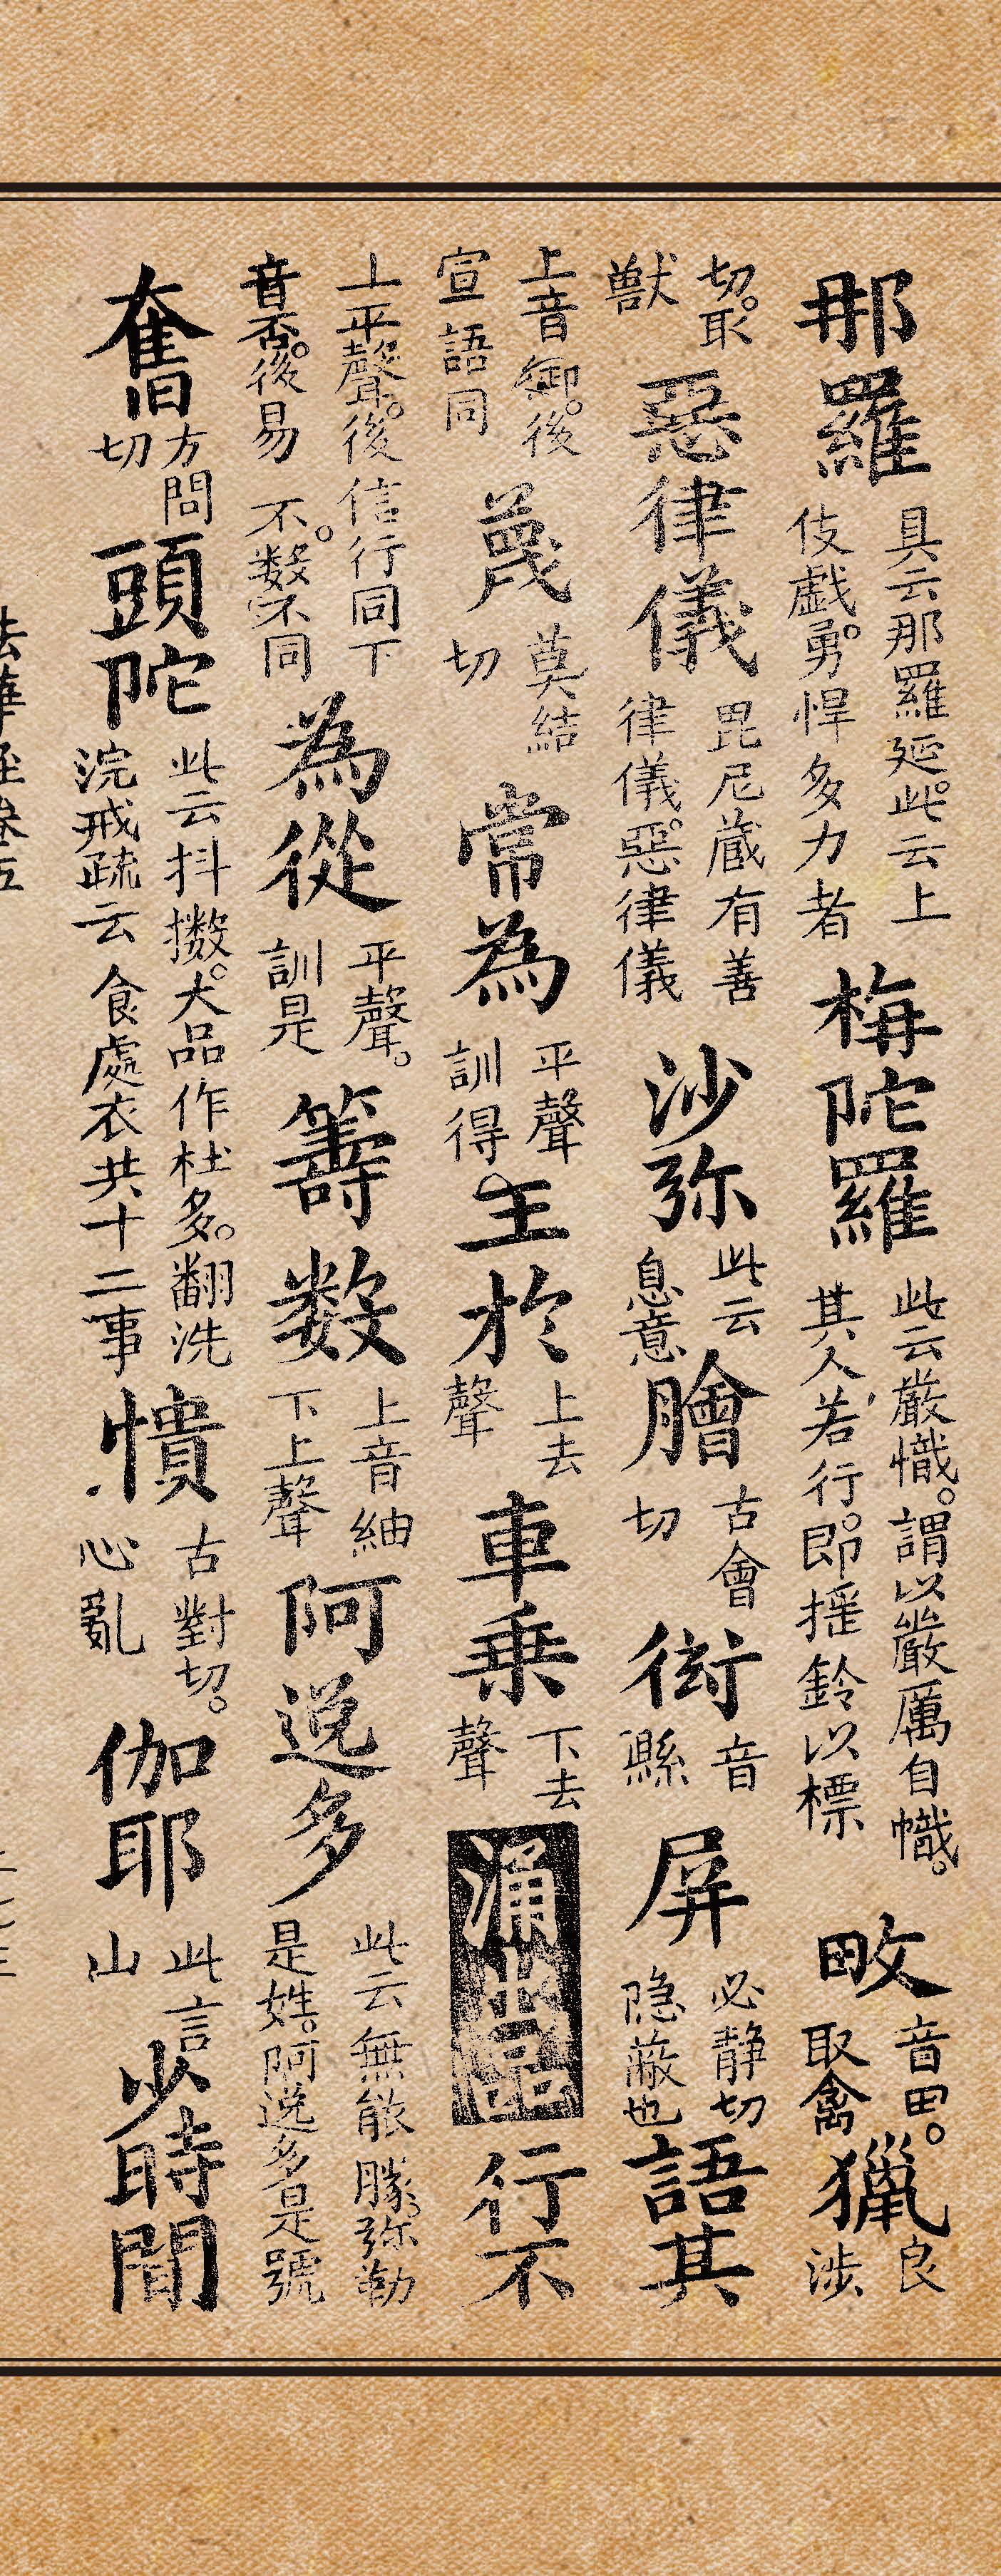 那羅具云那羅延。此云上伎戲。勇悍多力者栴陀羅此云嚴幟。謂以嚴厲自幟。其人若行。即摇鈴以標畋音田。取禽獵良涉
切。取獸惡律儀毘尼蔵有善律儀。惡律儀沙弥此云息意膾古會切衒音縣屏必静切隐蔽也語其
上音御。後宣語同蔑莫結切常為平聲訓得。主於上去聲車乗下去聲涌出品行不
上平聲。後信行同下音否。後易不。數不同為從平聲。訓是籌数上音紬下上聲阿逸多此云無能勝。弥勒是姓。阿逸多是號
奮方問切頭陀此云抖擻。大品作杜多。翻洗浣戒疏云食處衣共十二事憒古對切。心亂伽耶此言山少時間
法華經卷五